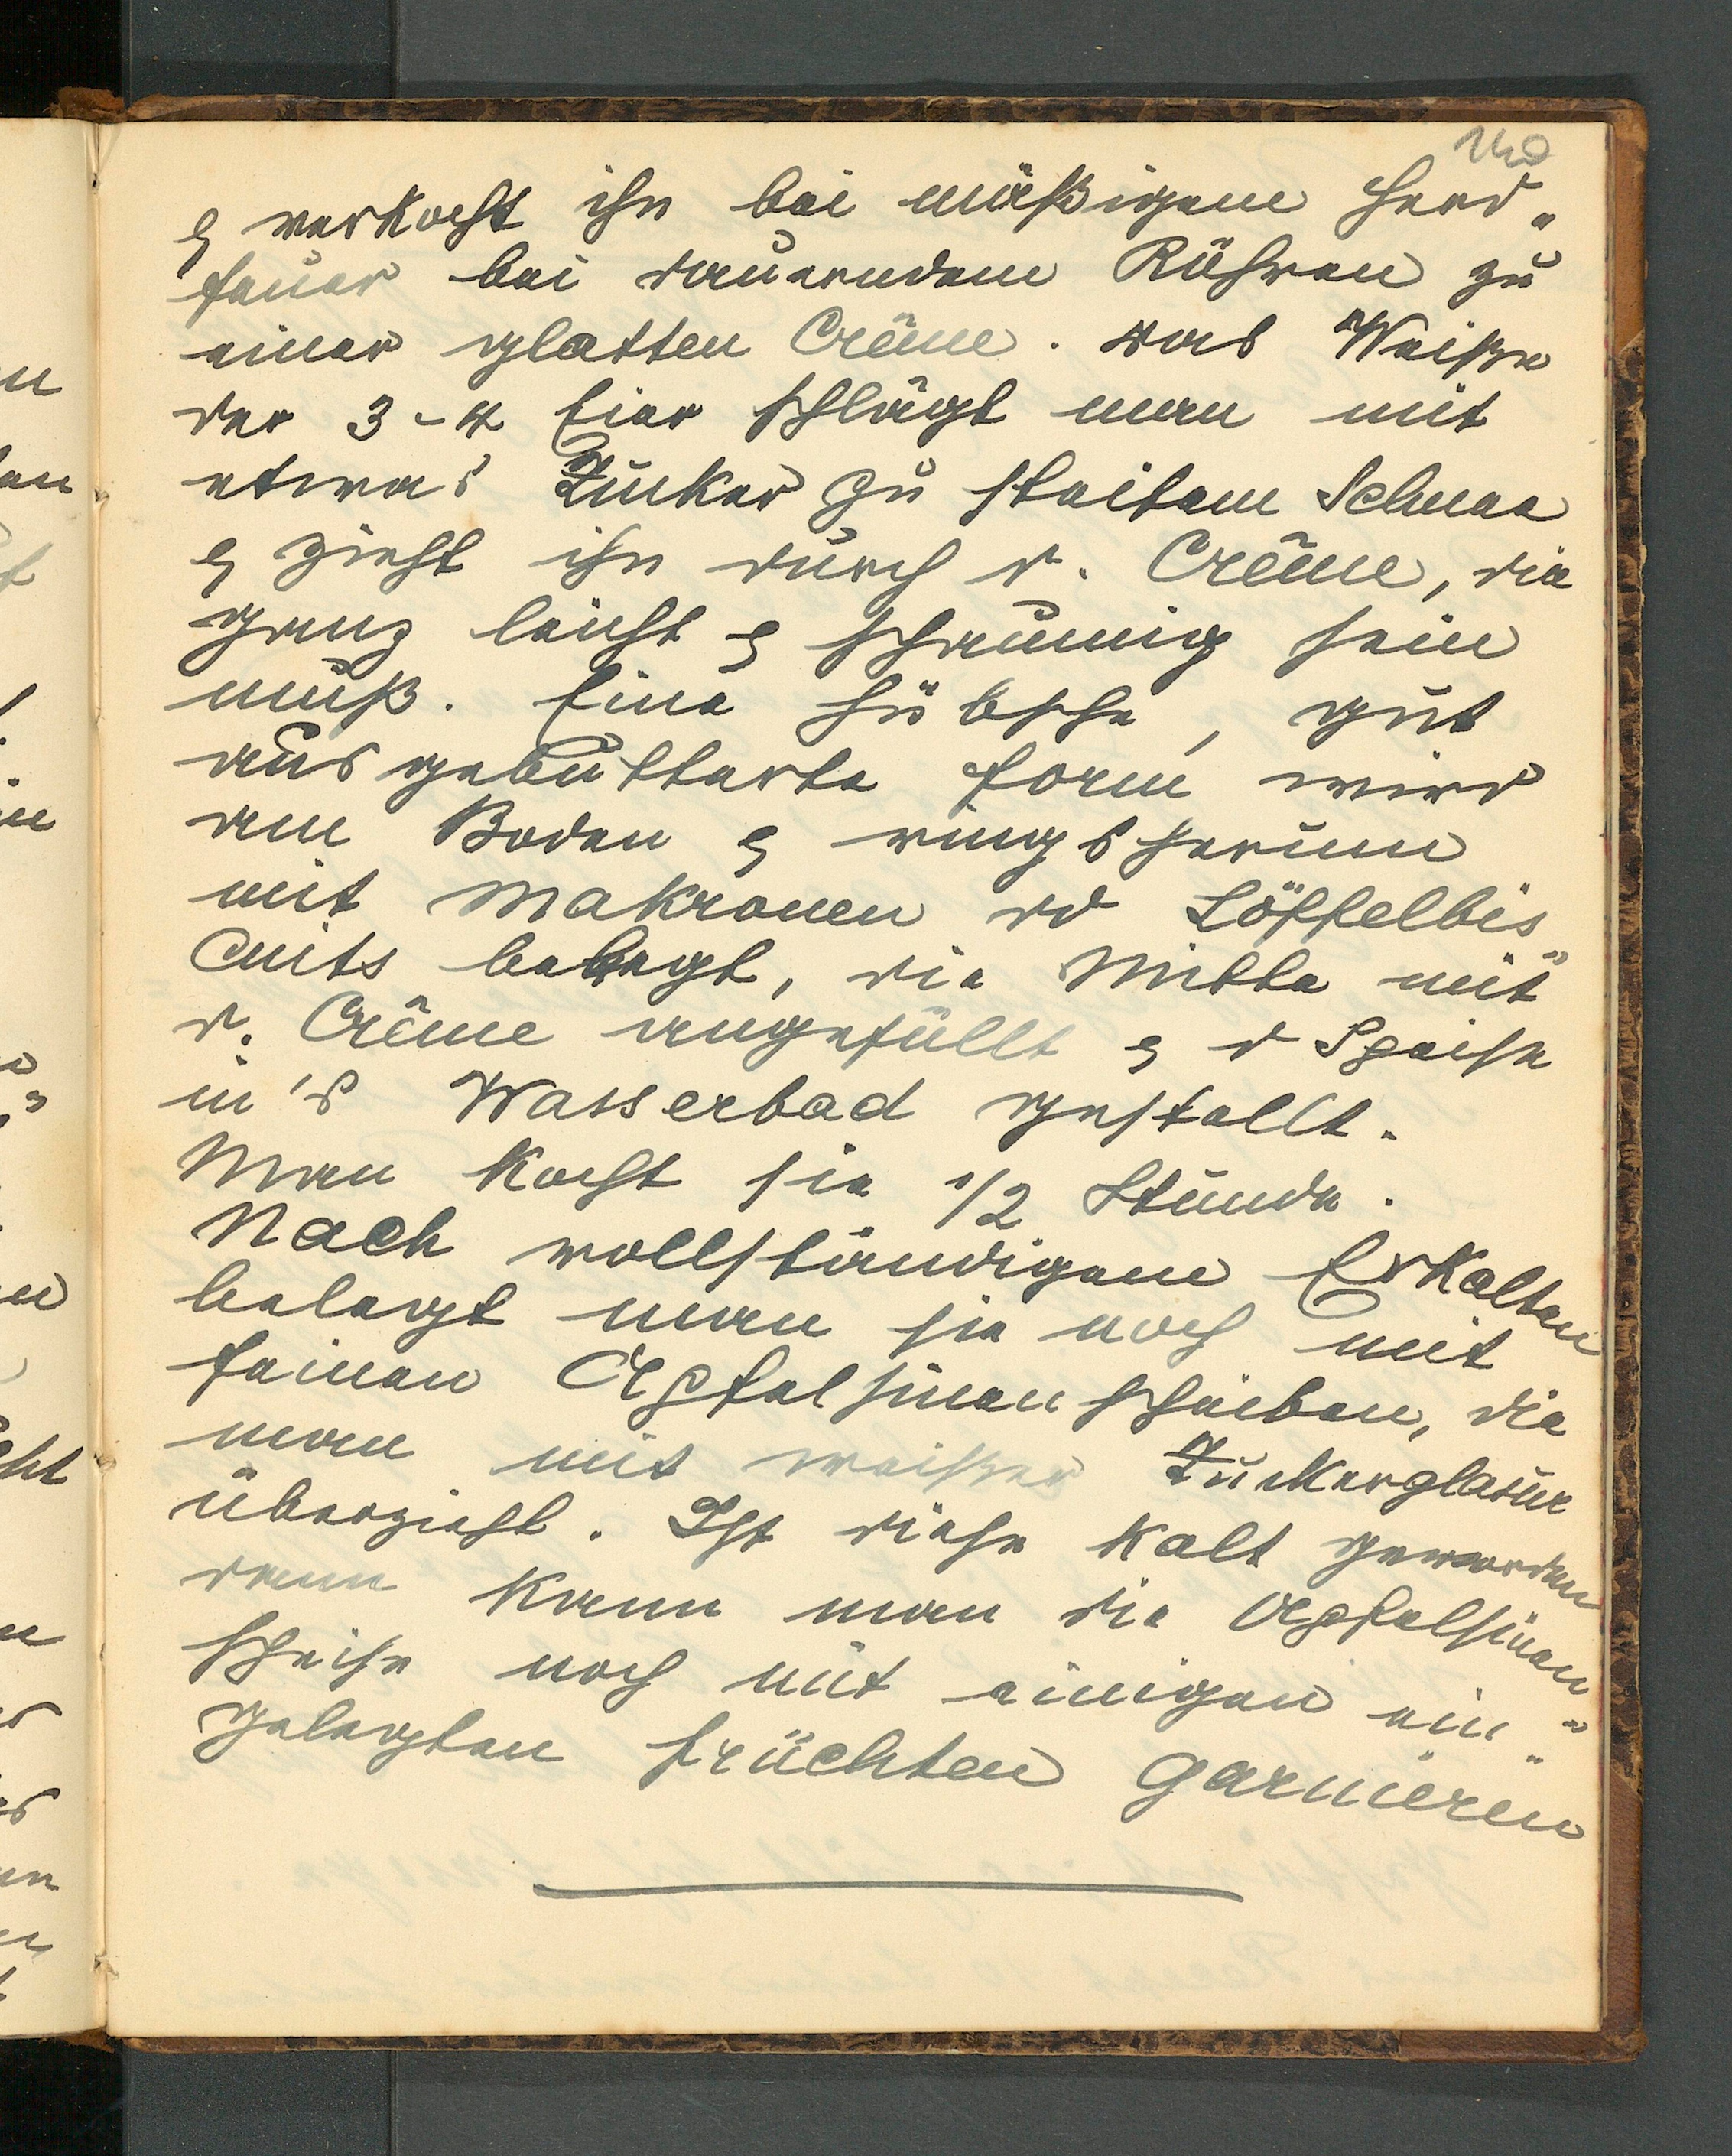 140
& verkocht ihn bei mäßigem Herd„
feuer bei dauerndem Rühren zu
einer glatten Crême. Das Weiße
der 3-4 Eier schlägt man mit
etwas Zucker zu steifem Schnee
& zieht ihn durch d. Crême, die
ganz leicht & schaumig sein
muß. Eine hübsche, gut
ausgebutterte Form wird
am Boden & ringsherum
mit Makronen od Löffelbis„
cuits belegt, die Mitte mit
d. Crême angefüllt & d Speise
in's Wasserbad gestellt.
Man kocht sie 1/2 Stunde.
Nach vollständigem Erkalten
belegt man sie noch mit
feinen Apfelsinenscheiben, die
man mit weißer Zuckerglasur
überzieht. Ist diese kalt geworden
dann kann man die Apfelsinen„
speise noch mit einigen ein„
gelegten Früchten garnieren